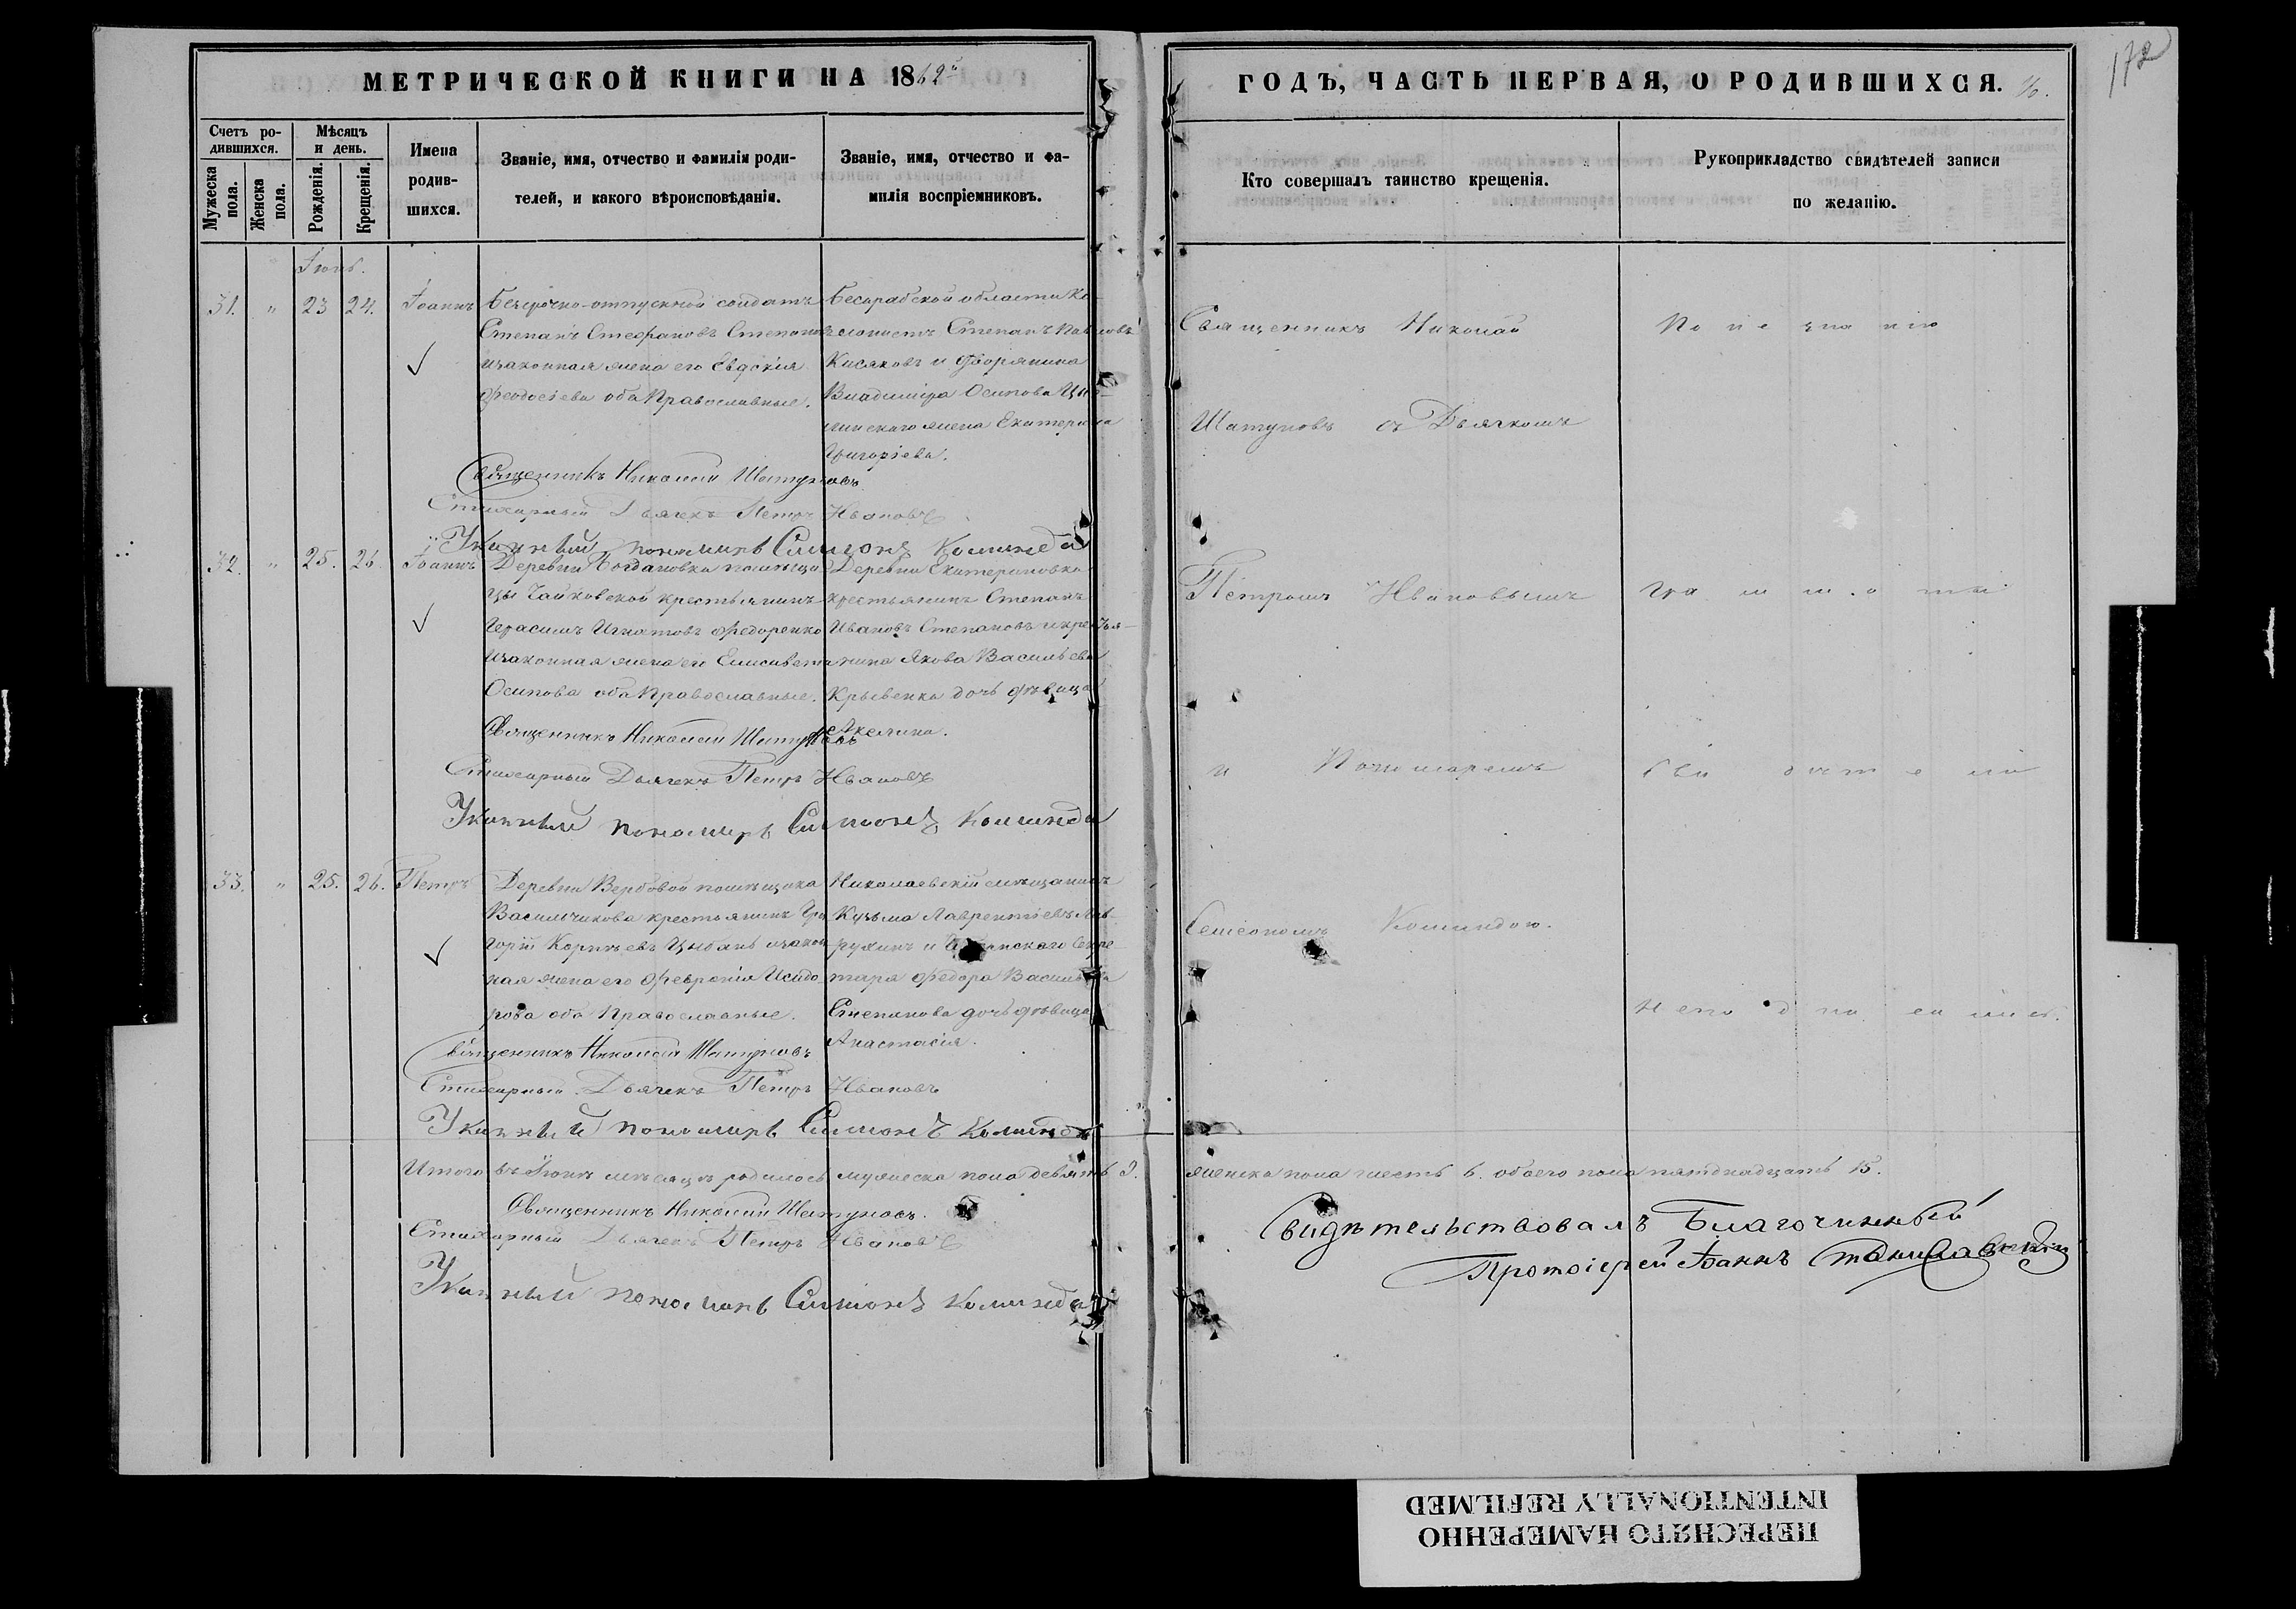 МЕТРИЧЕСКОЙ КНИГИ НА 1862й
ГОДЪ, ЧАСТЬ ПЕРВАЯ, О РОДИВШИХСЯ.
172
Счетъ родившихся.
Мужеска пола.
Женска пола.
Мѣсяцъ и день.
Рожденія.
Крещенія.
Имена родившихся.
Званіе, имя, отчество и фамилія родителей, и какого вѣроисповѣданія.
Званіе, имя, отчество и фамилія воспріемниковъ.
Кто совершалъ таинство крещенія.
Рукоприкладство свидѣтелей записи по желанію.
Іюнь.
31. " 23 24. Іоаннъ
Безсрочно-отпускной солдатъ
Степанъ Стефановъ Степановъ
и законная жена его Евдокія
Феодосіева оба Православные.
Бесарабской области Ко-
лонистъ Степанъ Павловъ
Кисяковъ и дворянина
Владиміра Осипова
жена Екатерина
Григоріева.
Священникъ Николай Шатуновъ
Стихарный Дьячекъ Петръ Ивановъ
Указный пономарь Симеонъ Коминда
32. " 25. 26. Іоаннъ
Деревни Богдановки помѣщи-
цы Чайковской крестьянинъ
Герасимъ Игнатовъ Федоренко
и законная жена его Елисавета
Осипова оба Православные.
Деревни Екатериновки
крестьянинъ Степанъ
Ивановъ Степановъ и крестья-
нина Якова Васильева
Крывенка дочь дѣвица
Акелина.
Священникъ Николай Шатуновъ
Стихарный Дьячекъ Петръ Ивановъ
Указный пономарь Симеонъ Коминда
33. " 25. 26. Петръ
Деревни Вербовой помѣщика
Васильчикова крестьянинъ Гри-
горій Корнѣевъ Цыбань и закон-
ная жена его Февронія Исидо-
рова оба Православные.
Николаевскій мѣщанинъ
Кузьма Лаврентіевъ
и Секре-
таря Федора Васильева
Степанова дочь дѣвица
Анастасія.
Священникъ Николай Шатуновъ
Стихарный Дьячекъ Петръ Ивановъ
Указный пономарь Симеонъ Коминда
Итого въ Іюнѣ мѣсяцѣ родилось мужеска пола девять 9.
женска пола шесть 6. обоего пола пятнадцать 15.
Священникъ Николай Шатуновъ.
Стихарный Дьячекъ Петръ Ивановъ
Указный пономарь Симеонъ Коминда
Священникъ Николай
Шатуновъ съ Дьячкомъ
Петромъ Ивановымъ
и Пономаремъ
Симеономъ Коминдою.
По незнанію
грамоты
свидѣтели
неподписались.
Свидѣтельствовалъ Благочинный
Протоіерей Іоаннъ Станиславскій
ПЕРЕСНЯТО НАМЕРЕННО
INTENTIONALLY REFILMED